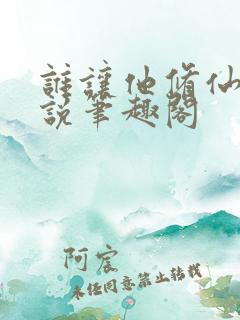 誰讓他修仙
說筆趣閣
阿宸
未经同意禁止转载